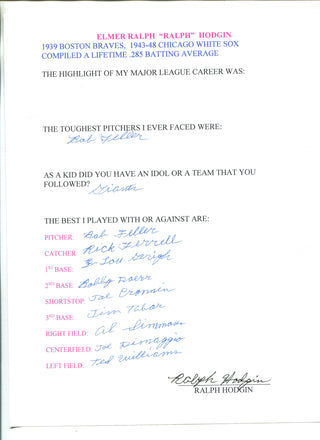 ELMER RALPH "RALPH" HODGIN
1939 BOSTON BRAVES, 1943-48 CHICAGO WHITE SOX
COMPILED A LIFETIME .285 BATTING AVERAGE
THE HIGHLIGHT OF MY MAJOR LEAGUE CAREER WAS:
THE TOUGHEST PITCHERS I EVER FACED WERE:
Bob Feller
AS A KID DID YOU HAVE AN IDOL OR A TEAM THAT YOU
FOLLOWED? Giants
THE BEST I PLAYED WITH OR AGAINST ARE:
PITCHER: Bob Feller
CATCHER: Rick Ferrell
1ST BASE: Lou Gerigh
2ND BASE: Bobby Doerr
SHORTSTOP: Joe Cronnin
3RD BASE: Jim Tabor
RIGHT FIELD: Al Simmons
CENTERFIELD: Joe Dimaggio
LEFT FIELD: Ted Williams
Ralph Hodgin
RALPH HODGIN